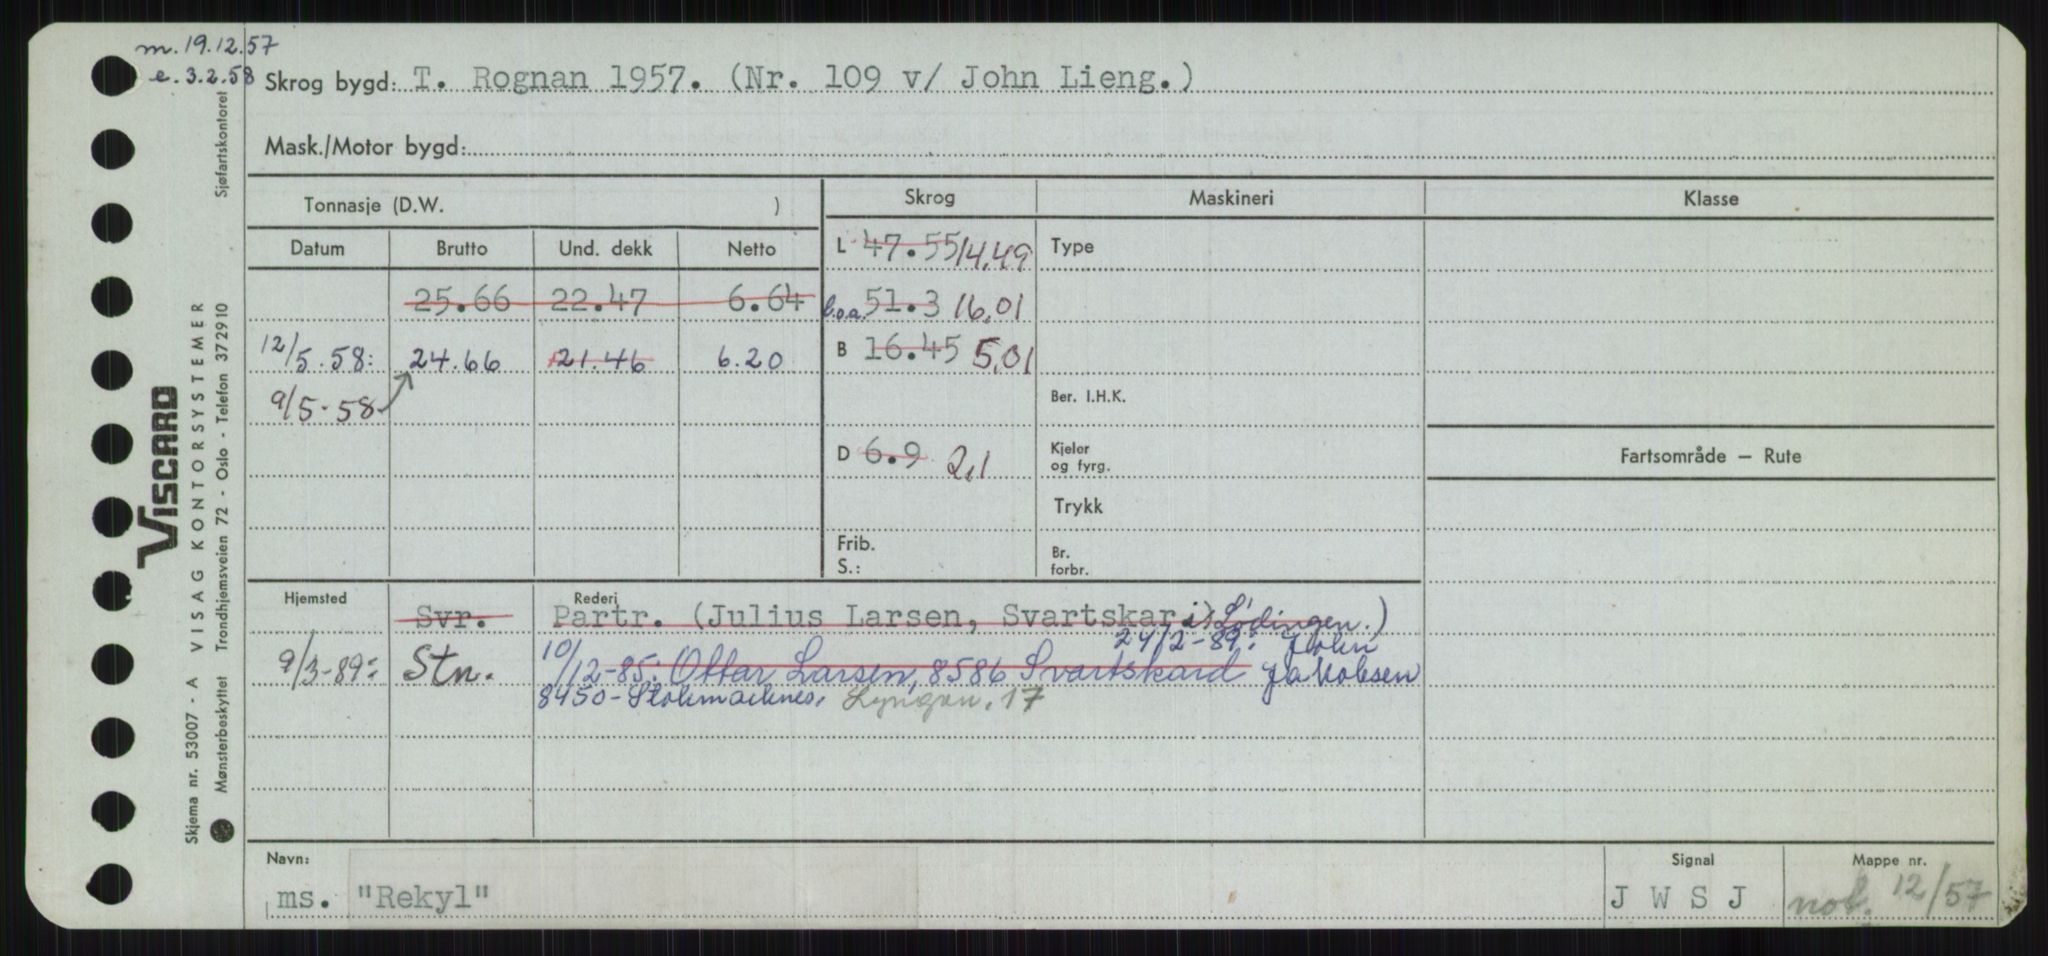 m. 19.12.57
e. 3.2.58
Skrog bygd: T. Rognan 1957. (Nr. 109 v/ John Lieng.)
Mask./Motor bygd:
Tonnasje (D.W. )
Skrog
Maskineri
Klasse
Datum Brutto Und. dekk Netto
L 47.55 14,49
Type
25.66 22.47 6.64
l.o.a. 51.3 16,01
12/5.58: 24.66 21.46 6.20
B 16.45 5,01
9/5-58
Ber. I.H.K.
D 6.9 2,1
Kjeler
og fyrg.
Fartsområde — Rute
Trykk
Frib.
S.:
Br.
forbr.
Hjemsted
Rederi
Svr. Partr. (Julius Larsen, Svartskar i Lødingen.)
24/2-89: John
9/3-89: Stn. 10/12-85: Ottar Larsen, 8586 Svartskard Jakobsen
8450-Stokmarknes. Lyngvn. 17
Navn:
ms. "Rekyl"
Signal
J W S J
Mappe nr.
not. 12/57
Sjøfartskontoret
VISCARD
VISAG KONTORSYSTEMER
Trondhjemsveien 72 - Oslo - Telefon 372910
Skjema nr. 53007 - A
Mønsterbeskyttet